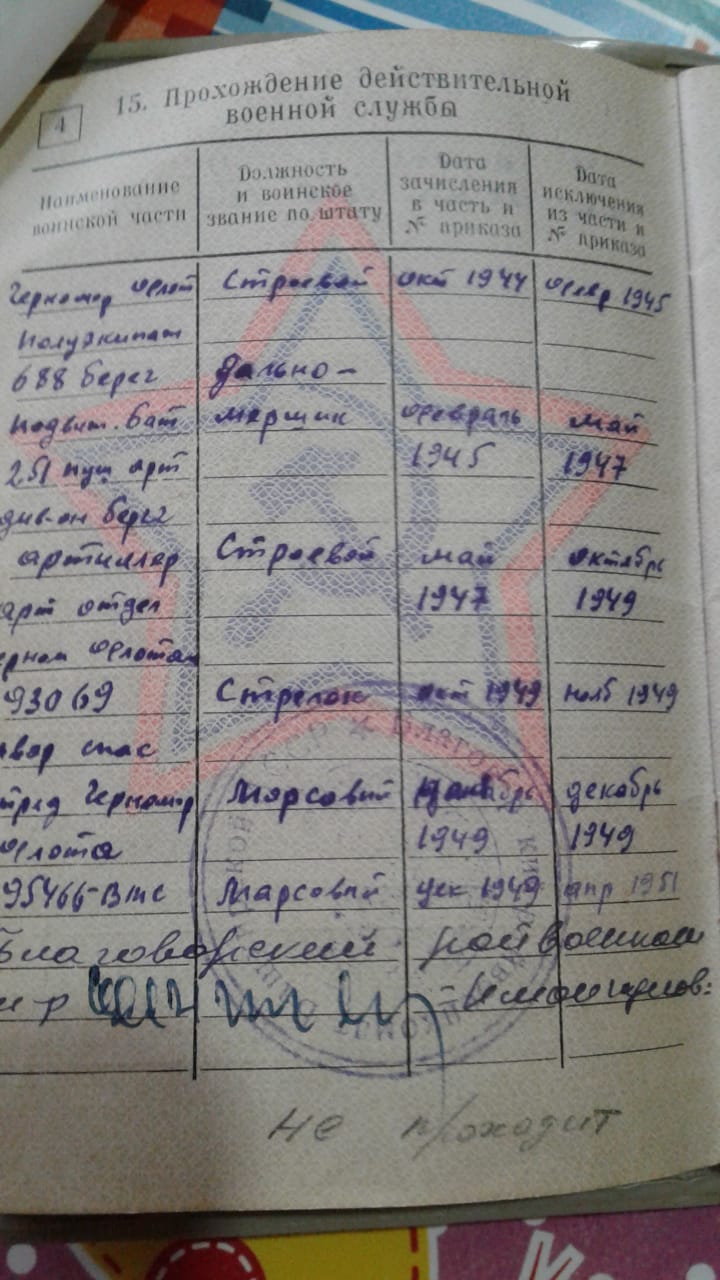 4
15. Прохождение действительной
военной службы
Наименование
воинской части
Должность
и воинское
звание по штату
Дата
зачисления
в часть и
№ приказа
Дата
исключения
из части и
№ приказа
Черномор флот Строевой окт 1944 февр 1945
полуэкипаж
688 берег Дально-
подвиж. бат мерщик февраль май
251 пуш арт 1945 1947
див-он берег
артиллер Строевой май октябрь
арт отдел 1947 1949
флота
93069 Стрелок окт 1949 нояб 1949
спас
Черномор Марсовый декабрь
флота 1949 1949
95466-В Марсовый дек 1949 апр 1951
Благоварский райвоенком
не проходит